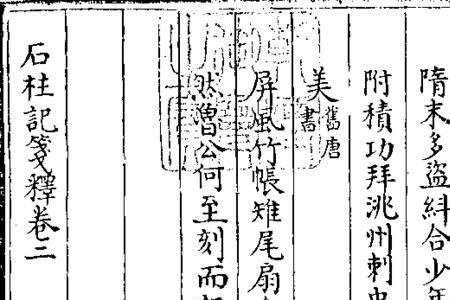 隋末多盜紏合少年
附積功拜洮州刺史
美舊唐書
屏風竹帳雉尾扇
然魯公何至刻而
石柱記箋釋卷二